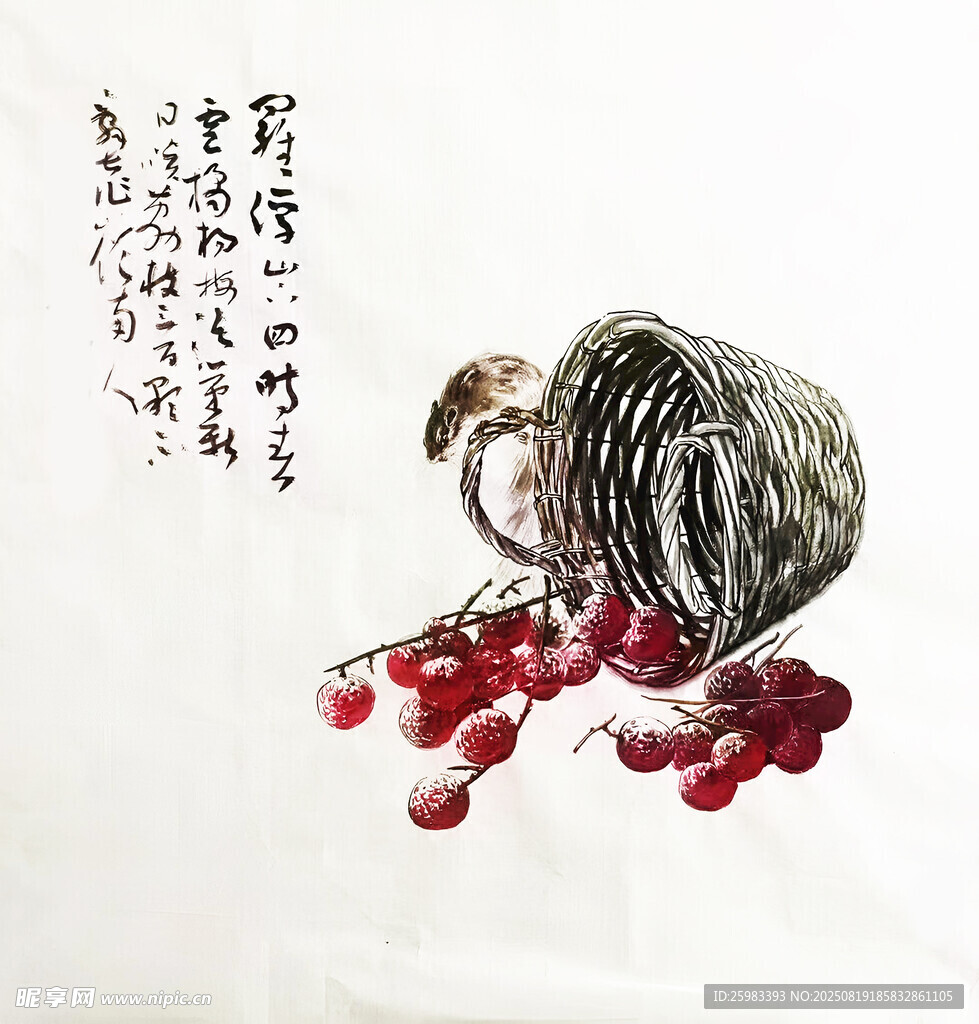 羅浮山下四時春
盧橘楊梅次第新
日啖荔枝三百顆不
辭長作嶺南人
昵享网 www.nipic.cn
ID:25983393 NO:20250819185832861105